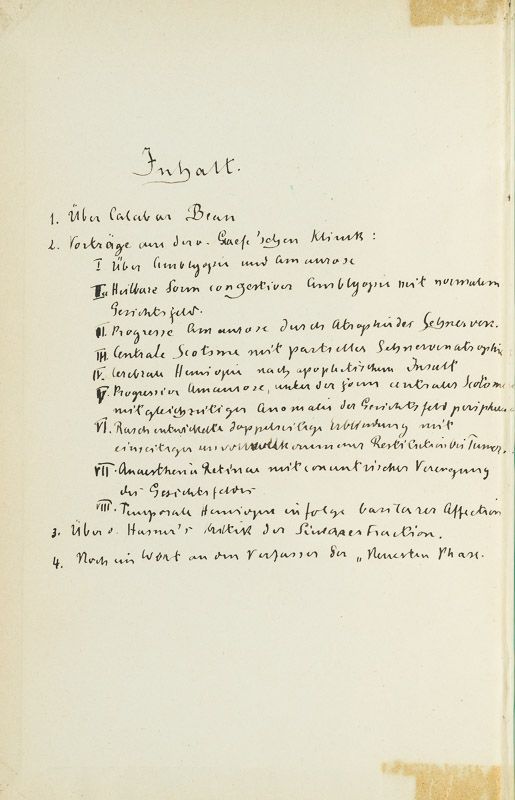 Inhalt.
1. Über Calabar Bean
2. Vorträge aus der v. Graefe'schen Klinik:
I Über Amblyopie und Amaurose
Heilbare Form congestiver Amblyopie mit normalem
Gesichtsfeld.
II. Progressive Amaurose durch Atrophie der Sehnerven.
III. Centrale Scotome mit partieller Sehnervenatrophie
IV. Cerebrale Hemiopie nach apoplectischem Insult
V. Progressive Amaurose, unter der Form centraler Scotome
mit gleichzeitiger Anomalie der Gesichtsfeld peripherie
VI. Rasch entwickelte doppelseitige Erblindung mit
einseitiger unvollkommener Restitution bei Tumor.
VII. Anaesthesia Retinae mit concentrischer Verengung
des Gesichtsfeldes
VIII. Temporale Hemiopie in folge basilarer Affection
3. Über v. Hasner's Kritik der Linearextraction.
4. Noch ein Wort an den Verfasser der „Neuesten Phase.